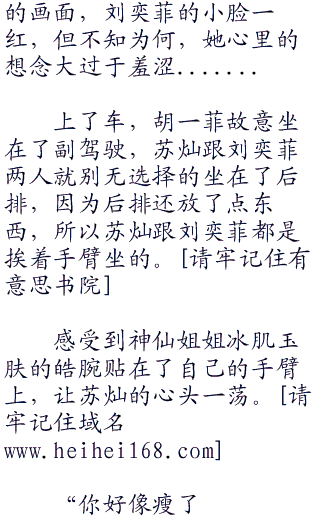 的画面，刘奕菲的小脸一
红，但不知为何，她心里的
想念大过于羞涩.......
上了车，胡一菲故意坐
在了副驾驶，苏灿跟刘奕菲
两人就别无选择的坐在了后
排，因为后排还放了点东
西，所以苏灿跟刘奕菲都是
挨着手臂坐的。[请牢记住有
意思书院]
感受到神仙姐姐冰肌玉
肤的皓腕贴在了自己的手臂
上，让苏灿的心头一荡。[请
牢记住域名
www.heihei168.com]
“你好像瘦了